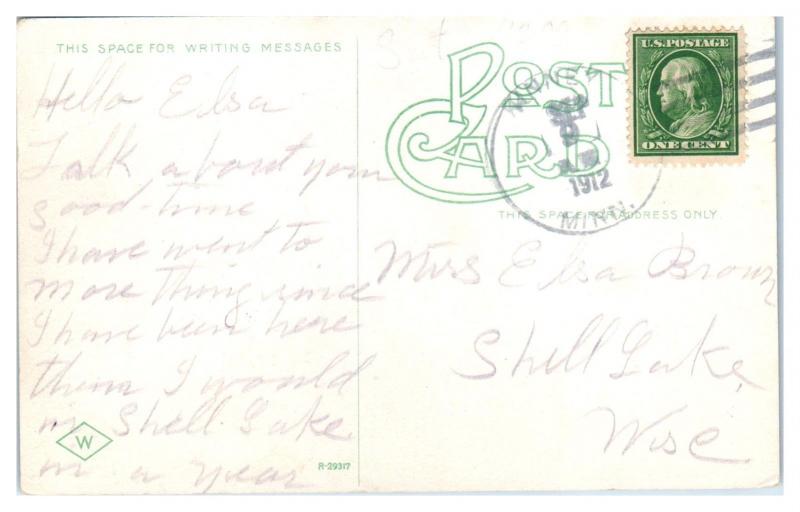 THIS SPACE FOR WRITING MESSAGES
Hello Elsa
Talk about your
good-time
I have went to
more thing since
I have been here
then I would
in Shell Lake
in a year
W
R-29317
POST
CARD
U.S. POSTAGE
ONE CENT
1912
MINN.
THIS SPACE FOR ADDRESS ONLY.
Miss Elsa Brown
Shell Lake
Wisc